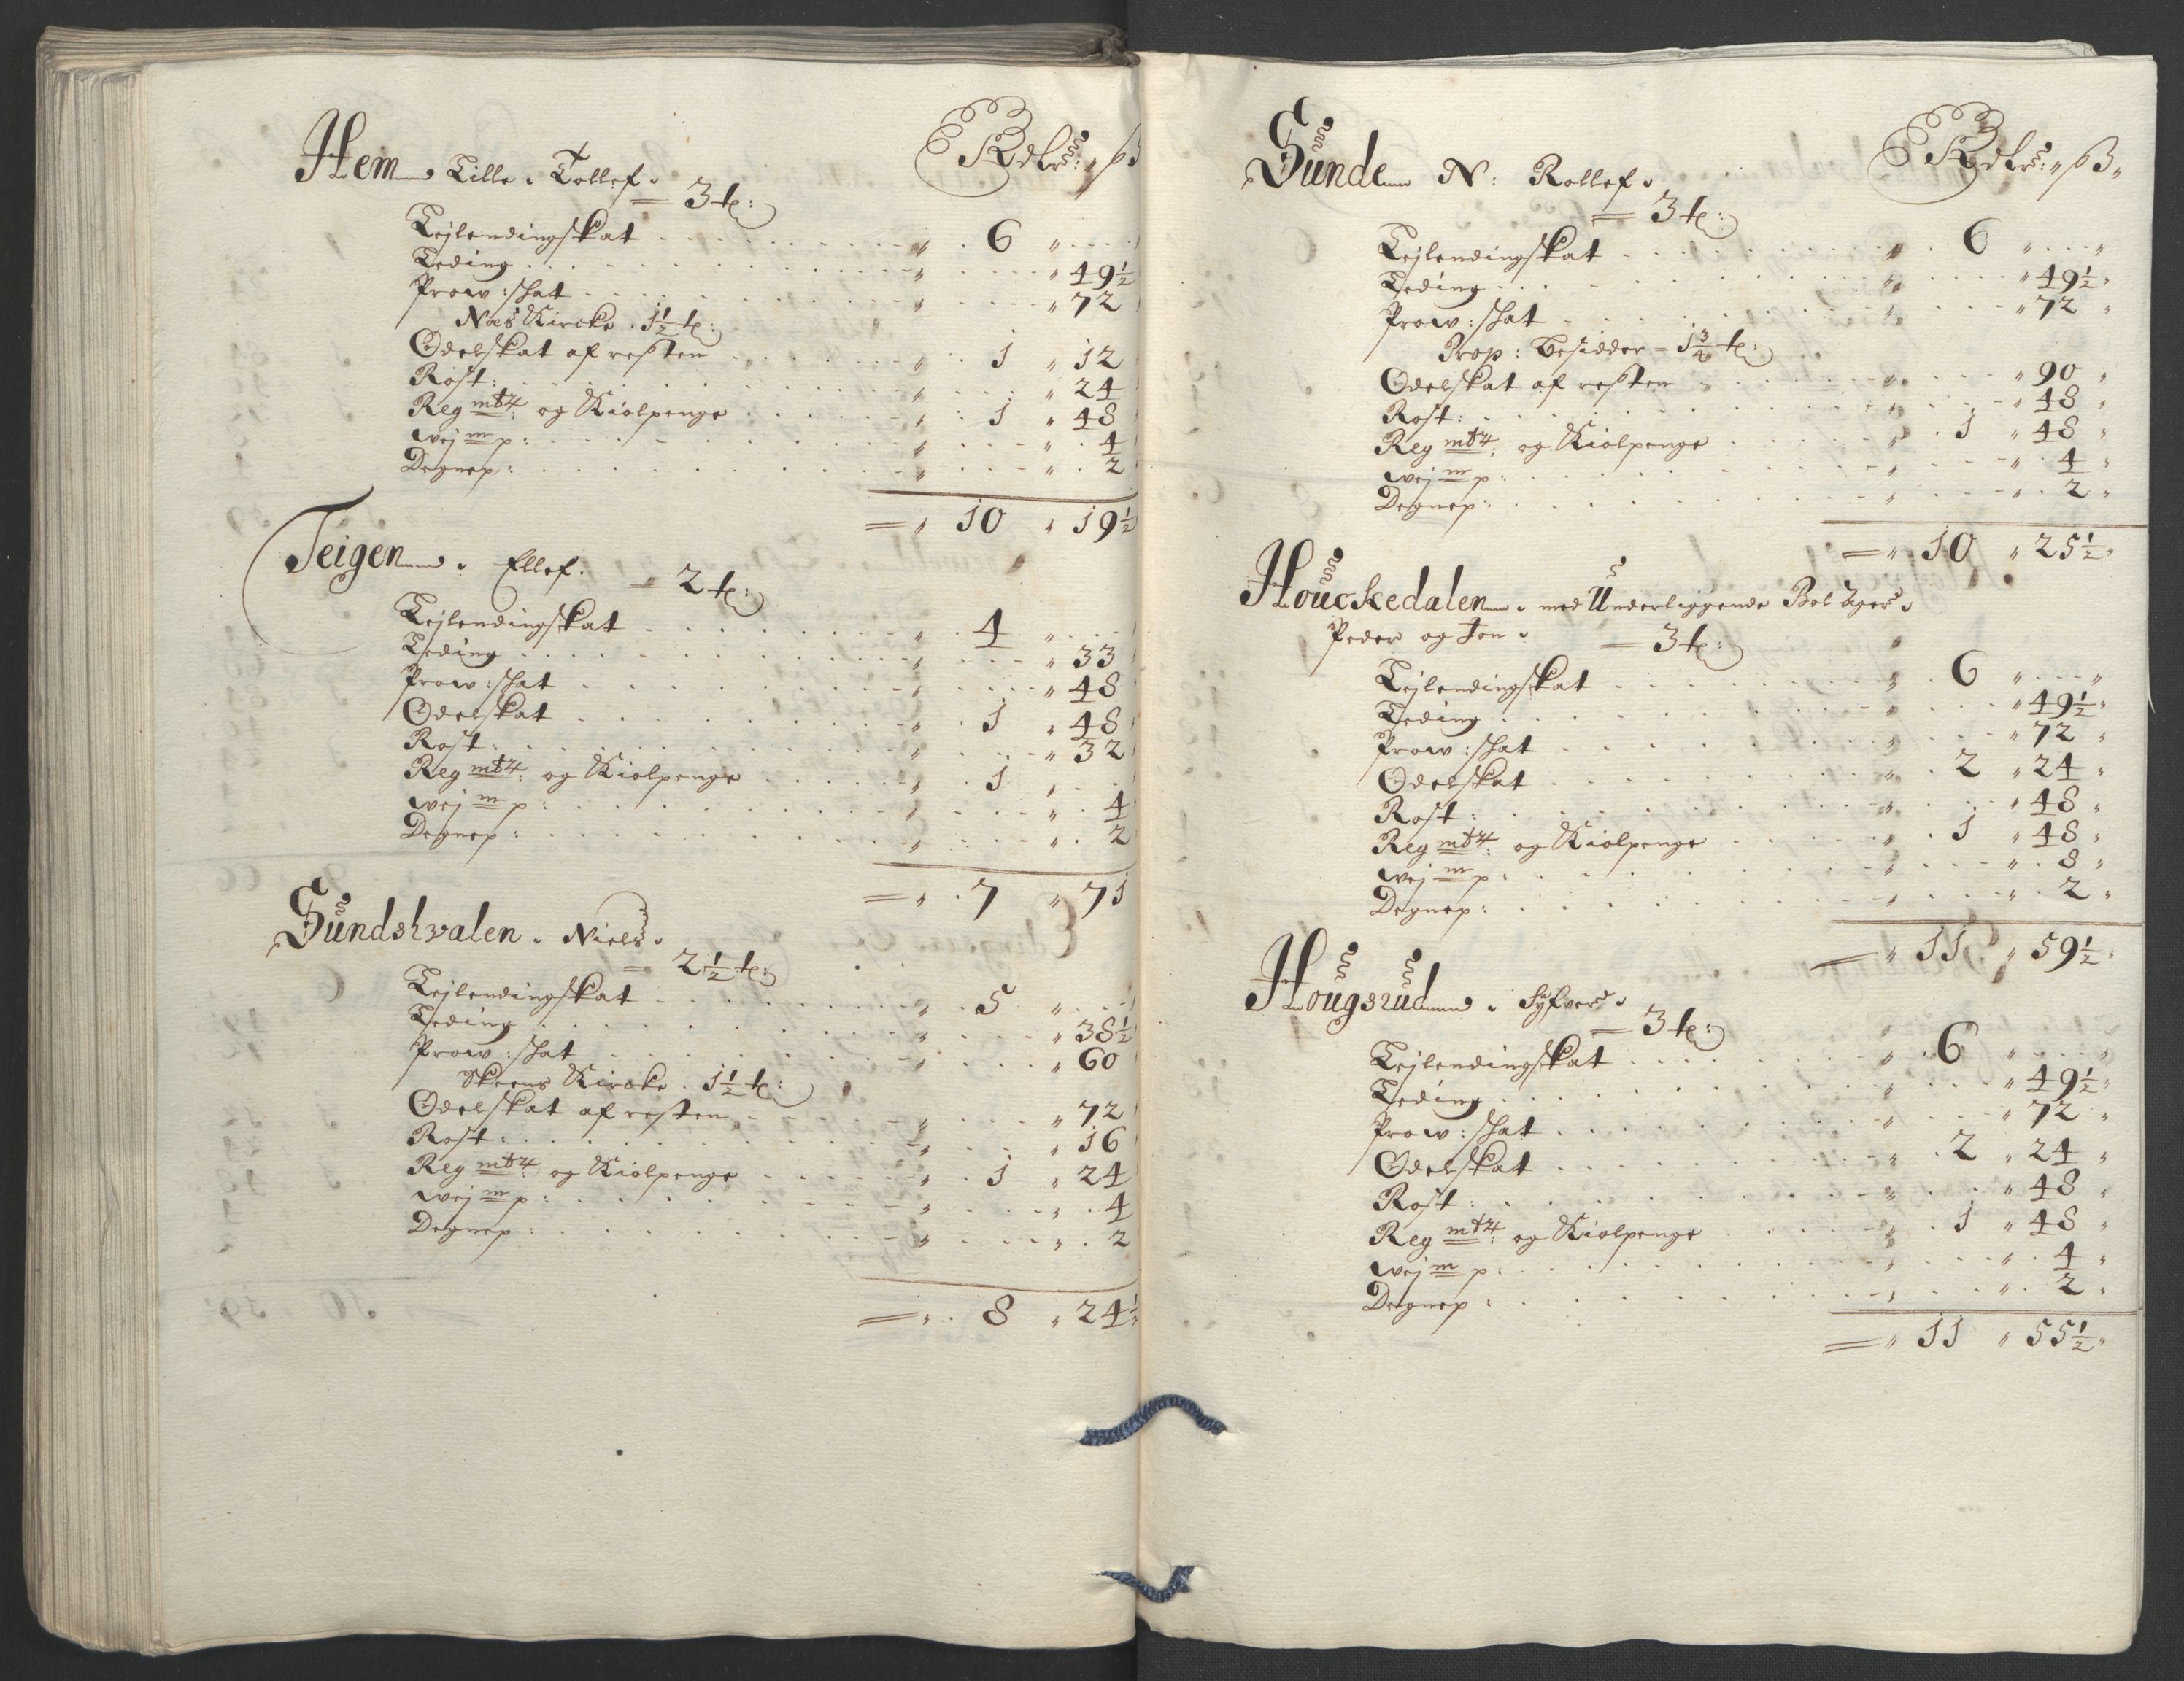 Rdlr: ß
Hem Lille. Tollef.
3 t:
Leilendingskat 6
Leding 49½
Prow: skat 72
Næs Kircke 1½ t:
Odelskat af resten 1 12
Rost: 24
Reg mt4: og Kiolpenge 1 48
Wej m p: 4
Degnep: 2
10 19½
Teigen. Ellef.
2 t:
Leilendingskat 4
Leding 33
Prow: skat 48
Odelskat 1 48
Rost: 32
Reg mt4: og Kiolpenge 1
Wej m p: 4
Degnep: 2
7 71
Sundshvalen. Niels.
2½ t:
Leilendingskat 5
Leding 38½
Prow: skat 60
Skeens Kircke. 1½ t:
Odelskat af resten 72
Rost: 16
Reg mt4: og Kiolpenge 1 24
Wej m p: 4
Degnep: 2
8 24½
Rdlr: ß
Sunde N: Rollef.
3 t:
Leilendingskat 6
Leding 49½
Prow: skat 72
Prop: besidder 1¾ t:
Odelskat af resten 90
Rost: 48
Reg mt4: og Kiolpenge 1 48
Wej m p: 4
Degnep: 2
10 25½
Houckedalen. med Underliggende Bol Ager.
Peder og Jon.
3 t:
Leilendingskat 6
Leding 49½
Prow: skat 72
Odelskat 2 24
Rost: 48
Reg mt4: og Kiolpenge 1 48
Wej m p: 8
Degnep: 2
11 59½
Hougsrud. Syfver.
3 t:
Leilendingskat 6
Leding 49½
Prow: skat 72
Odelskat 2 24
Rost: 48
Reg mt4: og Kiolpenge 1 48
Wej m p: 4
Degnep: 2
11 55½